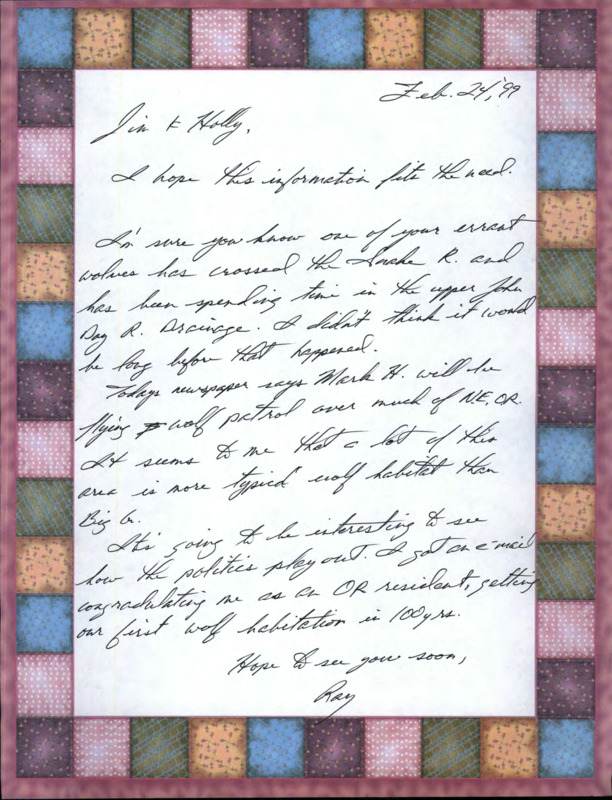 Feb. 24, '99
Jim & Holly,
I hope this information fits the need.
I'm sure you know one of your errant
wolves has crossed the Snake R. and
has been spending time in the upper John
Day R. Drainage. I didn't think it would
be long before that happened.
Todays newspaper says Mark H. will be
flying wolf patrol over much of N.E. OR.
It seems to me that a lot of this
area is more typical wolf habitat than
Big Cr.
It's going to be interesting to see
how the politics play out. I got an e-mail
congradulating me as an OR resident, getting
our first wolf habitation in 100 yrs.
Hope to see you soon,
Ray